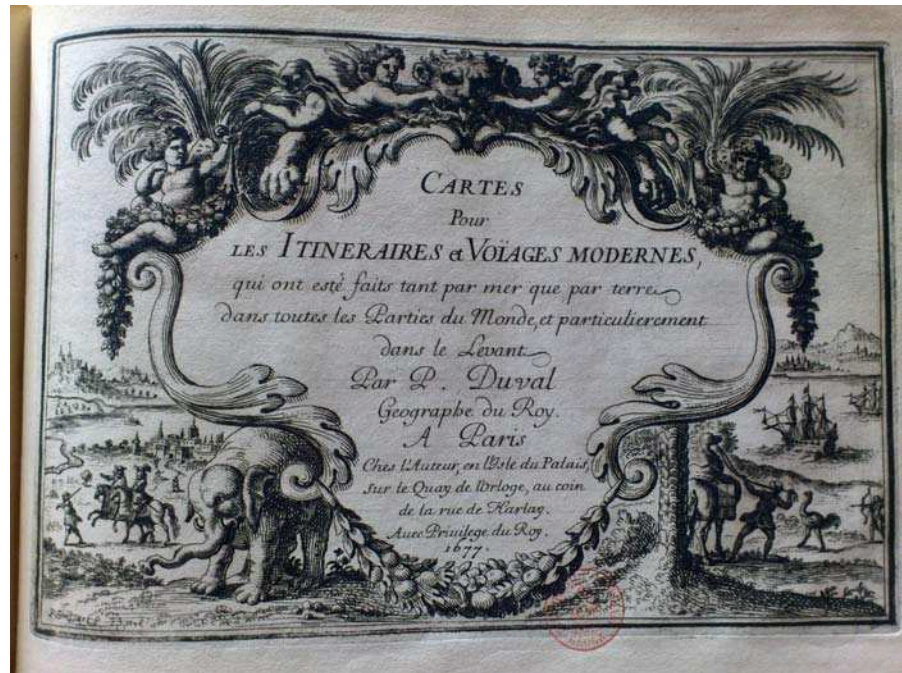 CARTES
Pour
LES ITINERAIRES et VOÏAGES MODERNES,
qui ont esté faits tant par mer que par terre
dans toutes les Parties du Monde, et particulierement
dans le Levant
Par P. Duval
Geographe du Roy.
A Paris
Ches l'Auteur, en l'Isle du Palais,
sur le Quay de l'Orloge, au coin
de la rue de Harlay.
Avec Privilege du Roy.
1677.